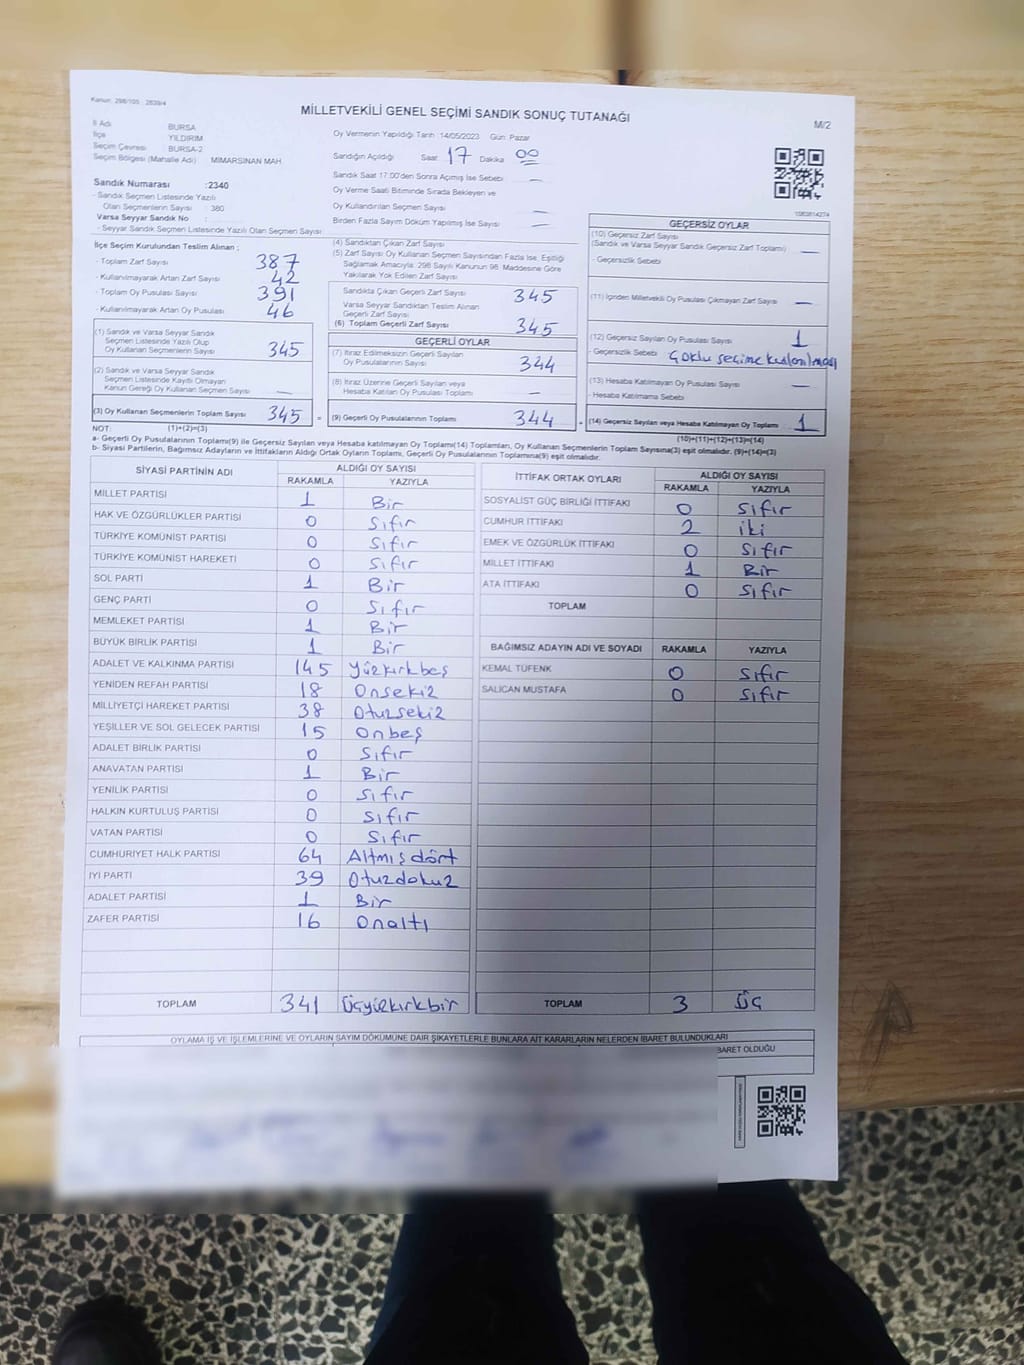 Kanun: 298/105 , 2839/4
MİLLETVEKİLİ GENEL SEÇİMİ SANDIK SONUÇ TUTANAĞI
M/2
İl Adı BURSA
İlçe YILDIRIM
Seçim Çevresi BURSA-2
Seçim Bölgesi (Mahalle Adı) MİMARSINAN MAH.
Oy Vermenin Yapıldığı Tarih :14/05/2023 Gün: Pazar
Sandığın Açıldığı Saat 17 Dakika 00
Sandık Saat 17:00'den Sonra Açımış İse Sebebi —
Oy Verme Saati Bitiminde Sırada Bekleyen ve
Oy Kullandırılan Seçmen Sayısı —
Birden Fazla Sayım Döküm Yapılmış İse Sayısı —
Sandık Numarası :2340
- Sandık Seçmen Listesinde Yazılı
Olan Seçmenlerin Sayısı : 380
Varsa Seyyar Sandık No :
- Seyyar Sandık Seçmen Listesinde Yazılı Olan Seçmen Sayısı
İlçe Seçim Kurulundan Teslim Alınan ;
- Toplam Zarf Sayısı 387
- Kullanılmayarak Artan Zarf Sayısı 42
- Toplam Oy Pusulası Sayısı 391
- Kullanılmayarak Artan Oy Pusulası 46
(1) Sandık ve Varsa Seyyar Sandık
Seçmen Listesinde Yazılı Olup
Oy Kullanan Seçmenlerin Sayısı 345
(2) Sandık ve Varsa Seyyar Sandık
Seçmen Listesinde Kayıtlı Olmayan
Kanun Gereği Oy Kullanan Seçmen Sayısı —
(3) Oy Kullanan Seçmenlerin Toplam Sayısı 345 =
(4) Sandıktan Çıkan Zarf Sayısı
(5) Zarf Sayısı Oy Kullanan Seçmen Sayısından Fazla İse, Eşitliği
Sağlamak Amacıyla, 298 Sayılı Kanunun 98. Maddesine Göre
Yakılarak Yok Edilen Zarf Sayısı
Sandıkta Çıkan Geçerli Zarf Sayısı 345
Varsa Seyyar Sandıktan Teslim Alınan
Geçerli Zarf Sayısı
(6) Toplam Geçerli Zarf Sayısı 345
GEÇERLİ OYLAR
(7) İtiraz Edilmeksizin Geçerli Sayılan
Oy Pusulalarının Sayısı 344
(8) İtiraz Üzerine Geçerli Sayılan veya
Hesaba Katılan Oy Pusulası Toplamı —
(9) Geçerli Oy Pusulalarının Toplamı 344 +
1063814274
GEÇERSİZ OYLAR
(10) Geçersiz Zarf Sayısı
(Sandık ve Varsa Seyyar Sandık Geçersiz Zarf Toplamı) —
- Geçersizlik Sebebi
(11) İçinden Milletvekili Oy Pusulası Çıkmayan Zarf Sayısı —
(12) Geçersiz Sayılan Oy Pusulası Sayısı 1
- Geçersizlik Sebebi Çoklu seçime kullanılması
(13) Hesaba Katılmayan Oy Pusulası Sayısı —
- Hesaba Katılmama Sebebi
(14) Geçersiz Sayılan veya Hesaba Katılmayan Oy Toplamı 1
NOT: (1)+(2)=(3) (10)+(11)+(12)+(13)=(14)
a- Geçerli Oy Pusulalarının Toplamı(9) ile Geçersiz Sayılan veya Hesaba katılmayan Oy Toplamı(14) Toplamları, Oy Kullanan Seçmenlerin Toplam Sayısına(3) eşit olmalıdır. (9)+(14)=(3)
b- Siyasi Partilerin, Bağımsız Adayların ve İttifakların Aldığı Ortak Oyların Toplamı, Geçerli Oy Pusulalarının Toplamına(9) eşit olmalıdır.
SİYASİ PARTİNİN ADI ALDIĞI OY SAYISI
RAKAMLA YAZIYLA
MİLLET PARTİSİ 1 Bir
HAK VE ÖZGÜRLÜKLER PARTİSİ 0 Sıfır
TÜRKİYE KOMÜNİST PARTİSİ 0 Sıfır
TÜRKİYE KOMÜNİST HAREKETİ 0 Sıfır
SOL PARTİ 1 Bir
GENÇ PARTİ 0 Sıfır
MEMLEKET PARTİSİ 1 Bir
BÜYÜK BİRLİK PARTİSİ 1 Bir
ADALET VE KALKINMA PARTİSİ 145 Yüzkırkbeş
YENİDEN REFAH PARTİSİ 18 Onsekiz
MİLLİYETÇİ HAREKET PARTİSİ 38 Otuzsekiz
YEŞİLLER VE SOL GELECEK PARTİSİ 15 Onbeş
ADALET BİRLİK PARTİSİ 0 Sıfır
ANAVATAN PARTİSİ 1 Bir
YENİLİK PARTİSİ 0 Sıfır
HALKIN KURTULUŞ PARTİSİ 0 Sıfır
VATAN PARTİSİ 0 Sıfır
CUMHURİYET HALK PARTİSİ 64 Altmışdört
İYİ PARTİ 39 Otuzdokuz
ADALET PARTİSİ 1 Bir
ZAFER PARTİSİ 16 Onaltı
TOPLAM 341 Üçyüzkırkbir
İTTİFAK ORTAK OYLARI ALDIĞI OY SAYISI
RAKAMLA YAZIYLA
SOSYALİST GÜÇ BİRLİĞİ İTTİFAKI 0 Sıfır
CUMHUR İTTİFAKI 2 iki
EMEK VE ÖZGÜRLÜK İTTİFAKI 0 Sıfır
MİLLET İTTİFAKI 1 Bir
ATA İTTİFAKI 0 Sıfır
TOPLAM
BAĞIMSIZ ADAYIN ADI VE SOYADI RAKAMLA YAZIYLA
KEMAL TÜFENK 0 Sıfır
SALİCAN MUSTAFA 0 Sıfır
TOPLAM 3 Üç
OYLAMA İŞ VE İŞLEMLERİNE VE OYLARIN SAYIM DÖKÜMÜNE DAİR ŞİKAYETLERLE BUNLARA AİT KARARLARIN NELERDEN İBARET BULUNDUKLARI
BARET OLDUĞU